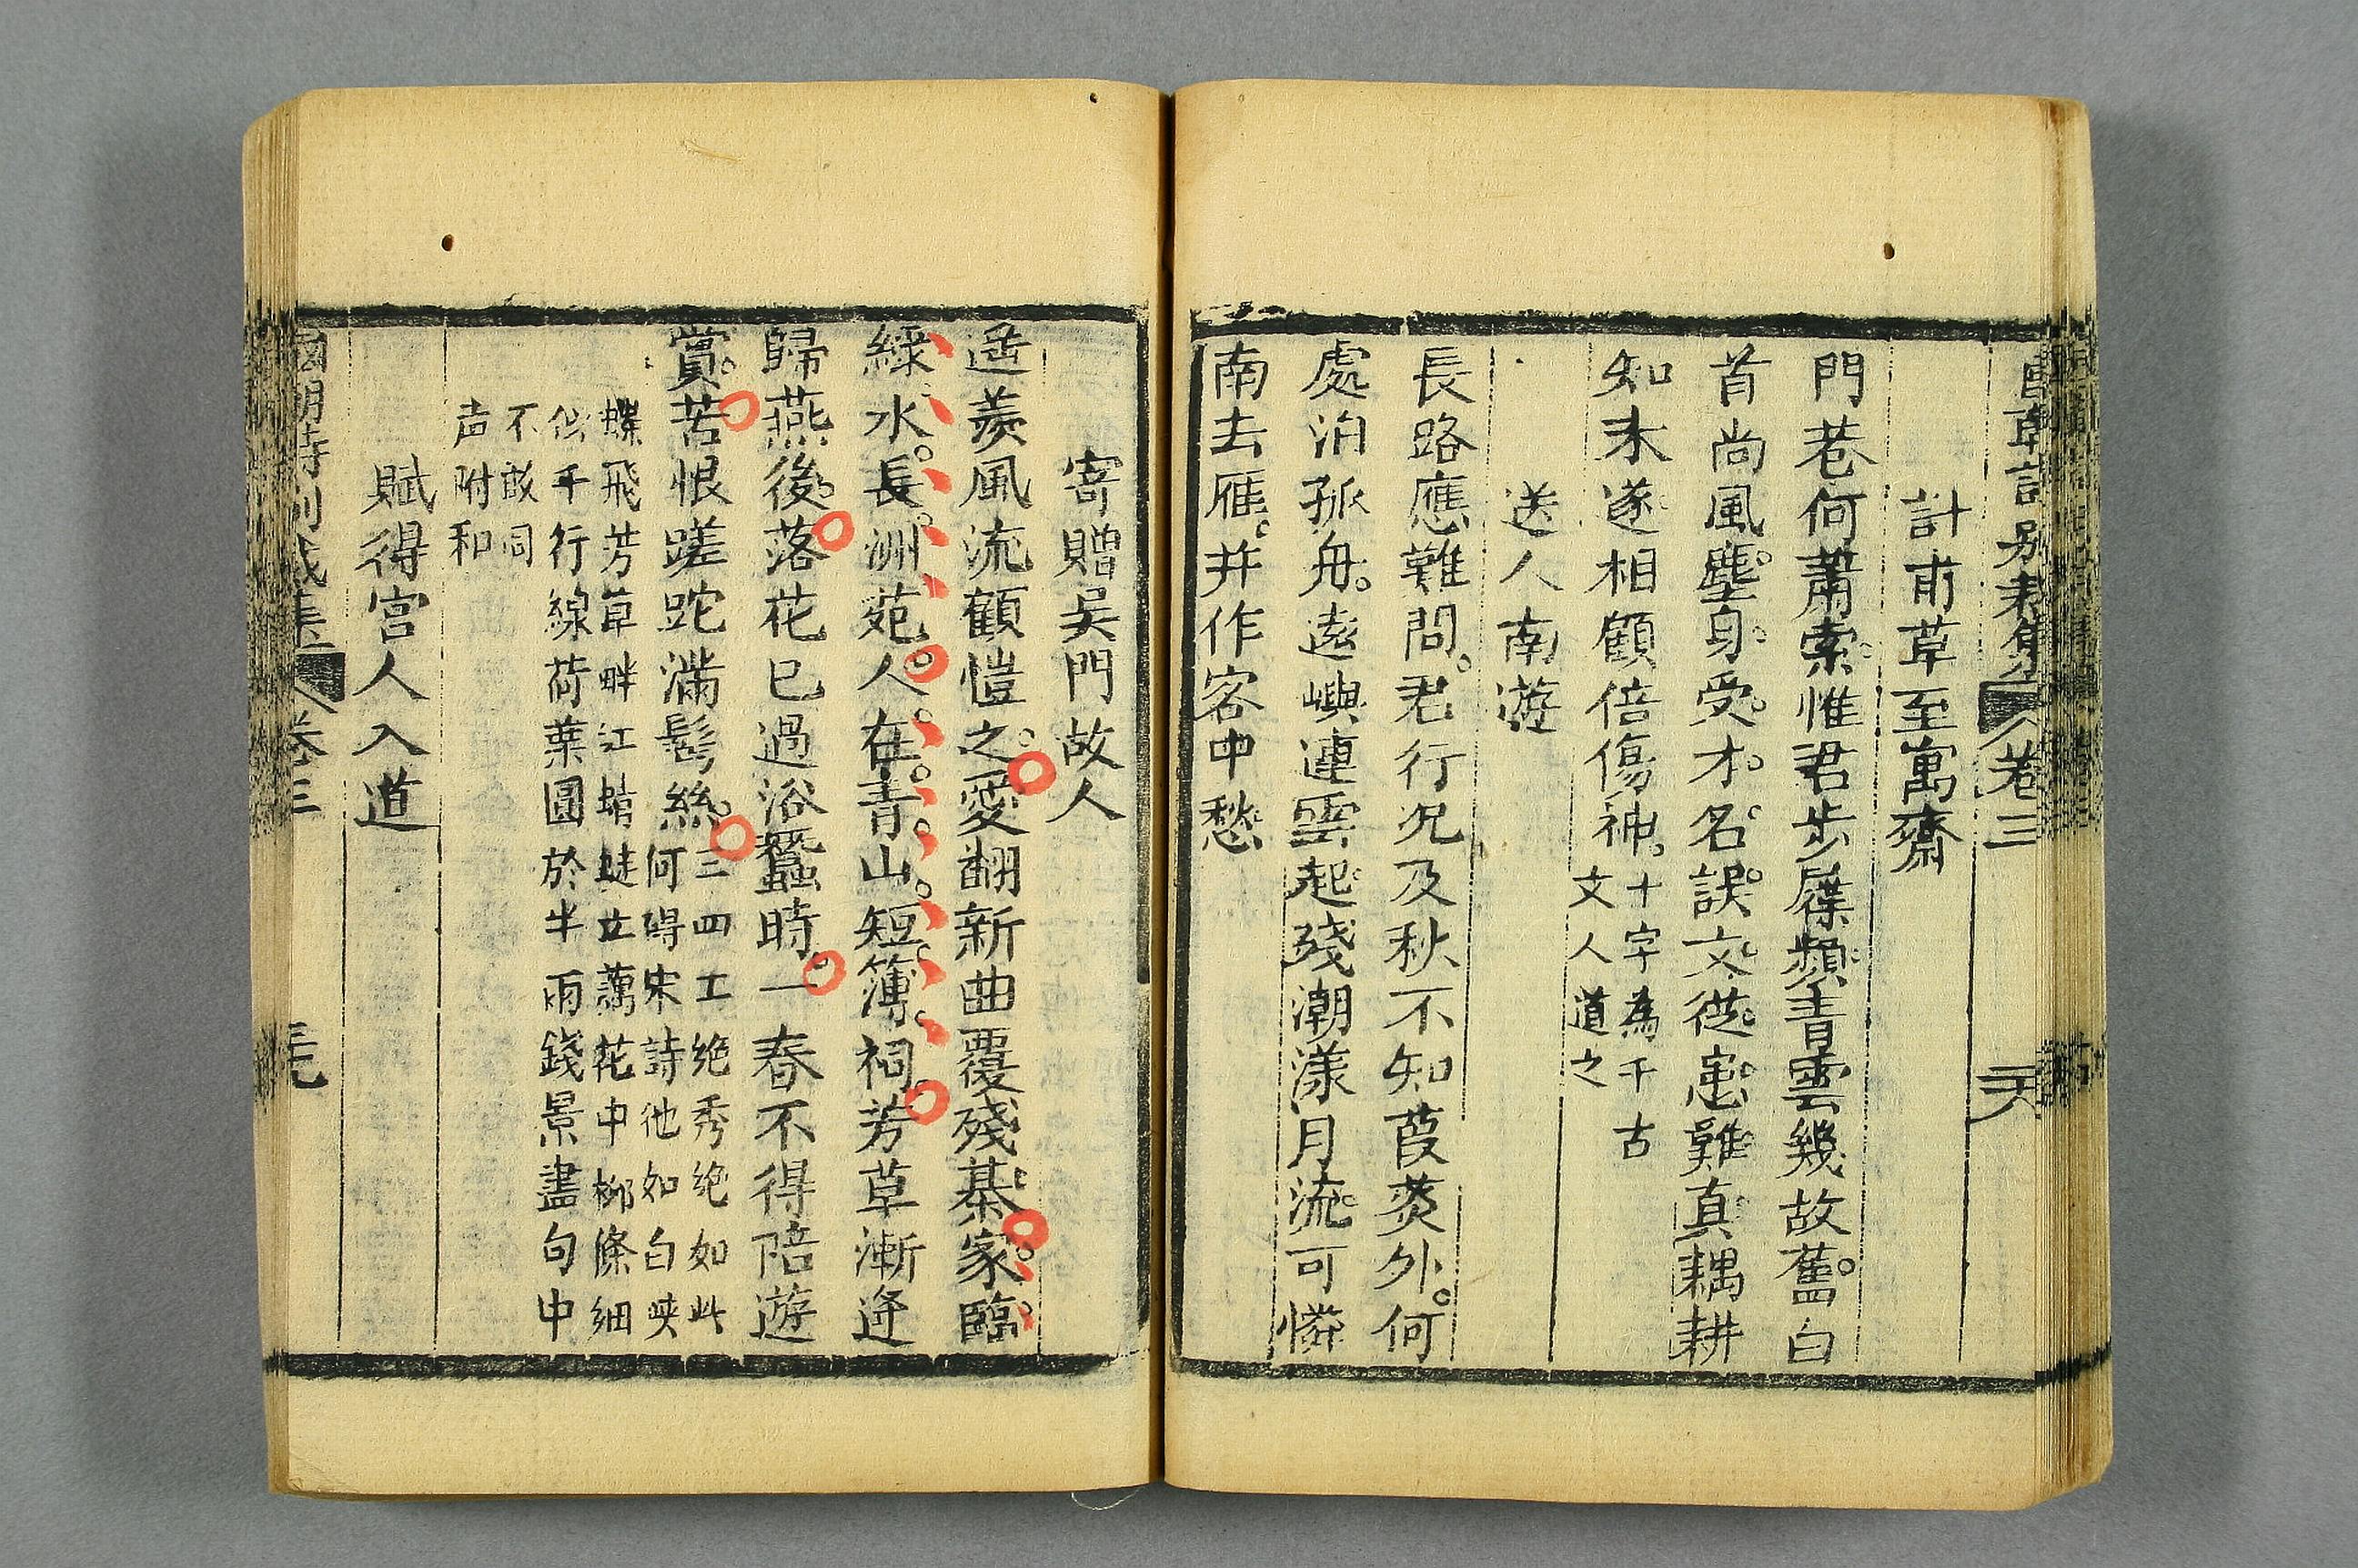 卷三
計甫草至寓齋
門巷何蕭索惟君步屧頻青雲幾故舊白
首尚風塵身受才名誤文從患難真耦耕
知未遂相顧倍傷神十字為千古
文人道之
送人南遊
長路應難問君行況及秋不知葭菼外何
處泊孤舟遠嶼連雲起殘潮漾月流可憐
南去雁并作客中愁
寄贈吳門故人
遥羨風流顧愷之愛翻新曲覆殘棊家臨
綠水長洲苑人在青山短簿祠芳草漸逢
歸燕後落花已過浴蠶時一春不得陪遊
賞苦恨蹉跎滿鬂絲三四工绝秀绝如此
何得宋詩他如白峡
蝶飛芳草畔江蜻蜓立藕花中柳條細
似千行線荷葉圓於半雨錢景盡句中
不敢同
声附和
賦得宫人入道
國朝詩別裁集 卷三